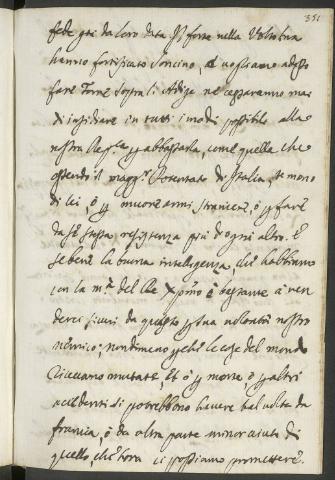 351
fede già da loro data di forze nella Valtolina
hanno fortificato Soncino, et vogliamo adesso
fare Torre sopra l'Adige ne cesseranno mai
di insidiare in tutti i modi possibile alla
nostra Rep.ca p abbassarla, come quella che
essendo il magg.r Potentato di Italia, temono
di lei, ò p muover armi straniere, ò p fare
da se stessa resistenza più d'ogni altro. E
se bene la buona intelligenza, che habbiamo
con la M.tà del Re X'pmo è bastante à ren
derci sicuri da questo p sua volontà nostro
nemico; nondimeno p che le cose del mondo
ricevano mutat.e, Et ò p morte, ò p altri
accidenti si potrebbono havere bel volta da
francia, ò da altra parte minor aiuto di
quello, che hora ci possiamo promettere.